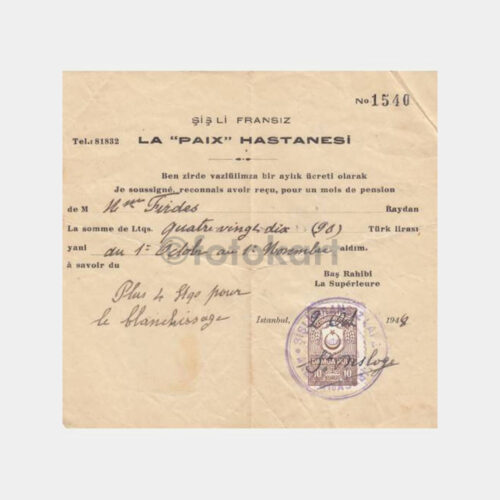 No 1540
ŞİŞLİ FRANSIZ
Tel.: 81832 LA "PAIX" HASTANESİ
Ben zirde vazlülimza bir aylık ücreti olarak
Je soussigné, reconnais avoir reçu, pour un mois de pension
de M Mme Firdes Baydan
La somme de Ltqs. Quatre vingt dix (90) Türk lirası
yani du 1er Octobre au 1er Novembre aldım.
à savoir du
Baş Rahibi
La Supérieure
Plus 4 Ltqs pour
le blanchissage
Istanbul, 2 Oct. 1948
10 10
©fotokart